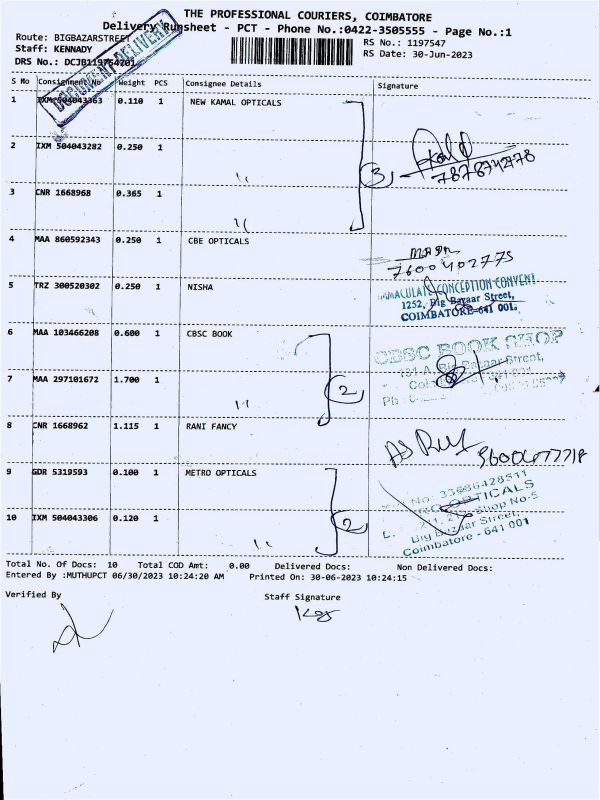 THE PROFESSIONAL COURIERS, COIMBATORE
Delivery Runsheet - PCT - Phone No.:0422-3505555 - Page No.:1
Route: BIGBAZARSTREET
RS No.: 1197547
Staff: KENNADY
RS Date: 30-Jun-2023
DRS No.: DCJB119754701
DOCUMENT DELIVERY
S No Consignment No Weight PCS Consignee Details Signature
1 IXM 504043363 0.110 1 NEW KAMAL OPTICALS
2 IXM 504043282 0.250 1 〃
3 CNR 1668968 0.365 1 〃
3
7878742778
4 MAA 860592343 0.250 1 CBE OPTICALS
7600402775
5 TRZ 300520302 0.250 1 NISHA
IMMACULATE CONCEPTION CONVENT
1252, Big Bazaar Street,
COIMBATORE-641 001.
6 MAA 103466208 0.600 1 CBSC BOOK
CBSC BOOK SHOP
Big Bazaar Street,
7 MAA 297101672 1.700 1 〃
2
8 CNR 1668962 1.115 1 RANI FANCY
9 GDR 5319593 0.100 1 METRO OPTICALS
No: 33686428511
OPTICALS
Shop No-5
Big Bazaar Street,
Coimbatore - 641 001
10 IXM 504043306 0.120 1 〃
2
Total No. Of Docs: 10 Total COD Amt: 0.00 Delivered Docs: Non Delivered Docs:
Entered By :MUTHUPCT 06/30/2023 10:24:20 AM Printed On: 30-06-2023 10:24:15
Verified By Staff Signature